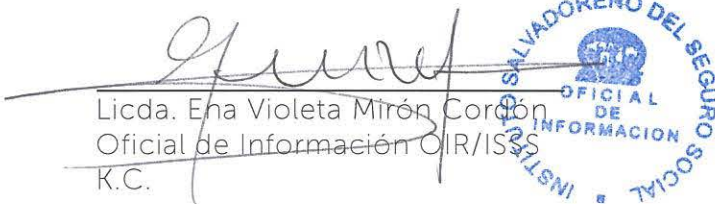 Licda. Ena Violeta Mirón Cordón
Oficial de Información OIR/ISSS
K.C.
INSTITUTO SALVADOREÑO DEL SEGURO SOCIAL
OFICIAL
DE
INFORMACION